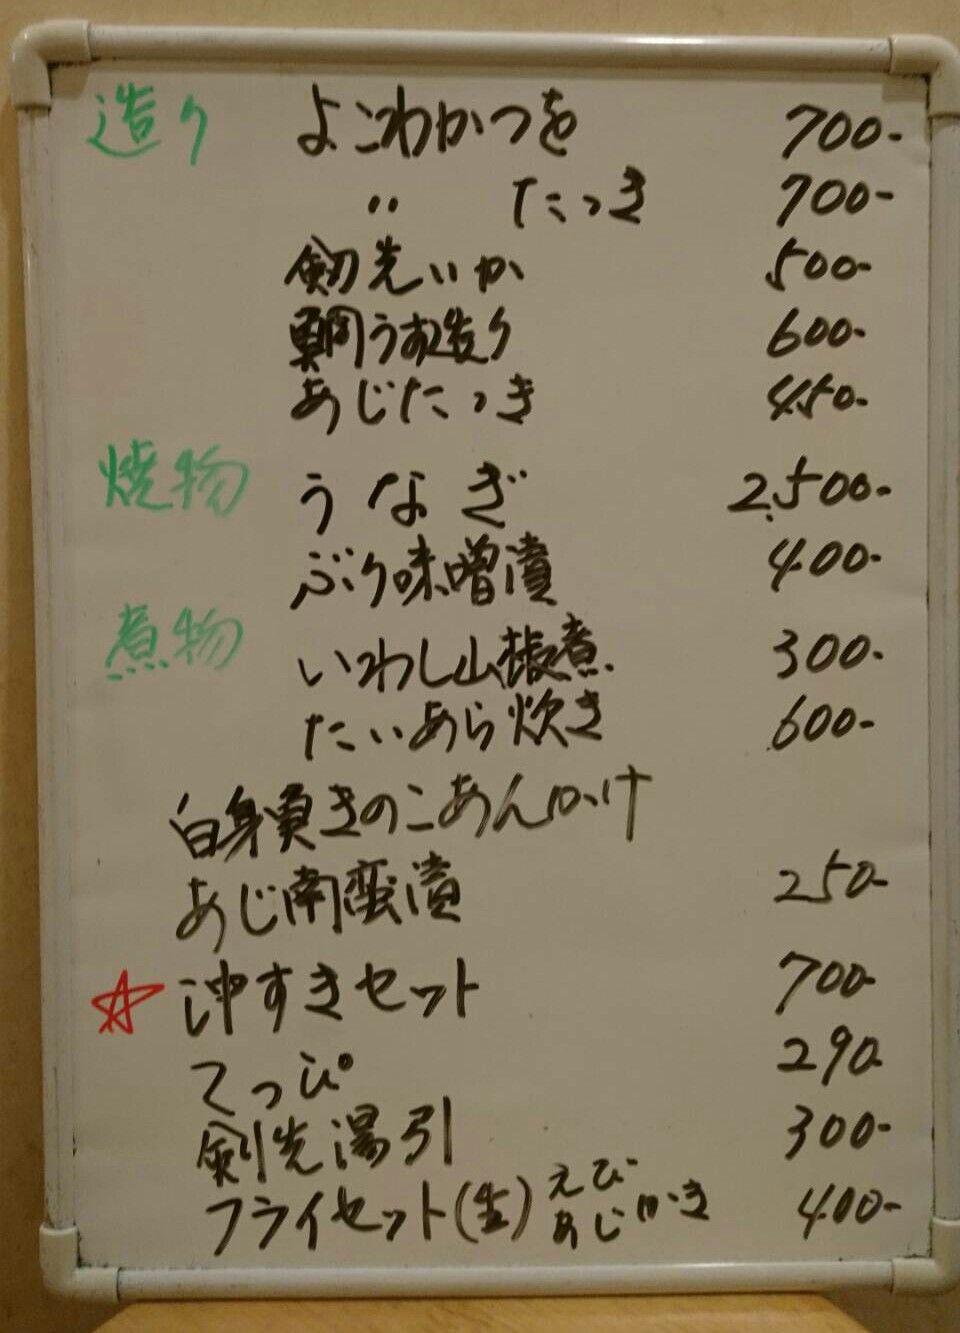 造り よこわかつを 700-
〃 たっき 700-
剣先いか 500-
鯛うす造り 600-
あじたっき 450-
焼物 うなぎ 2,500-
ぶり味噌漬 400-
煮物 いわし山椒煮 300-
たいあら炊き 600-
白身魚きのこあんかけ
あじ南蛮漬 250-
☆ 沖すきセット 700-
てっぴ 290
剣先湯引 300-
フライセット(生) えび あじ かき 400-